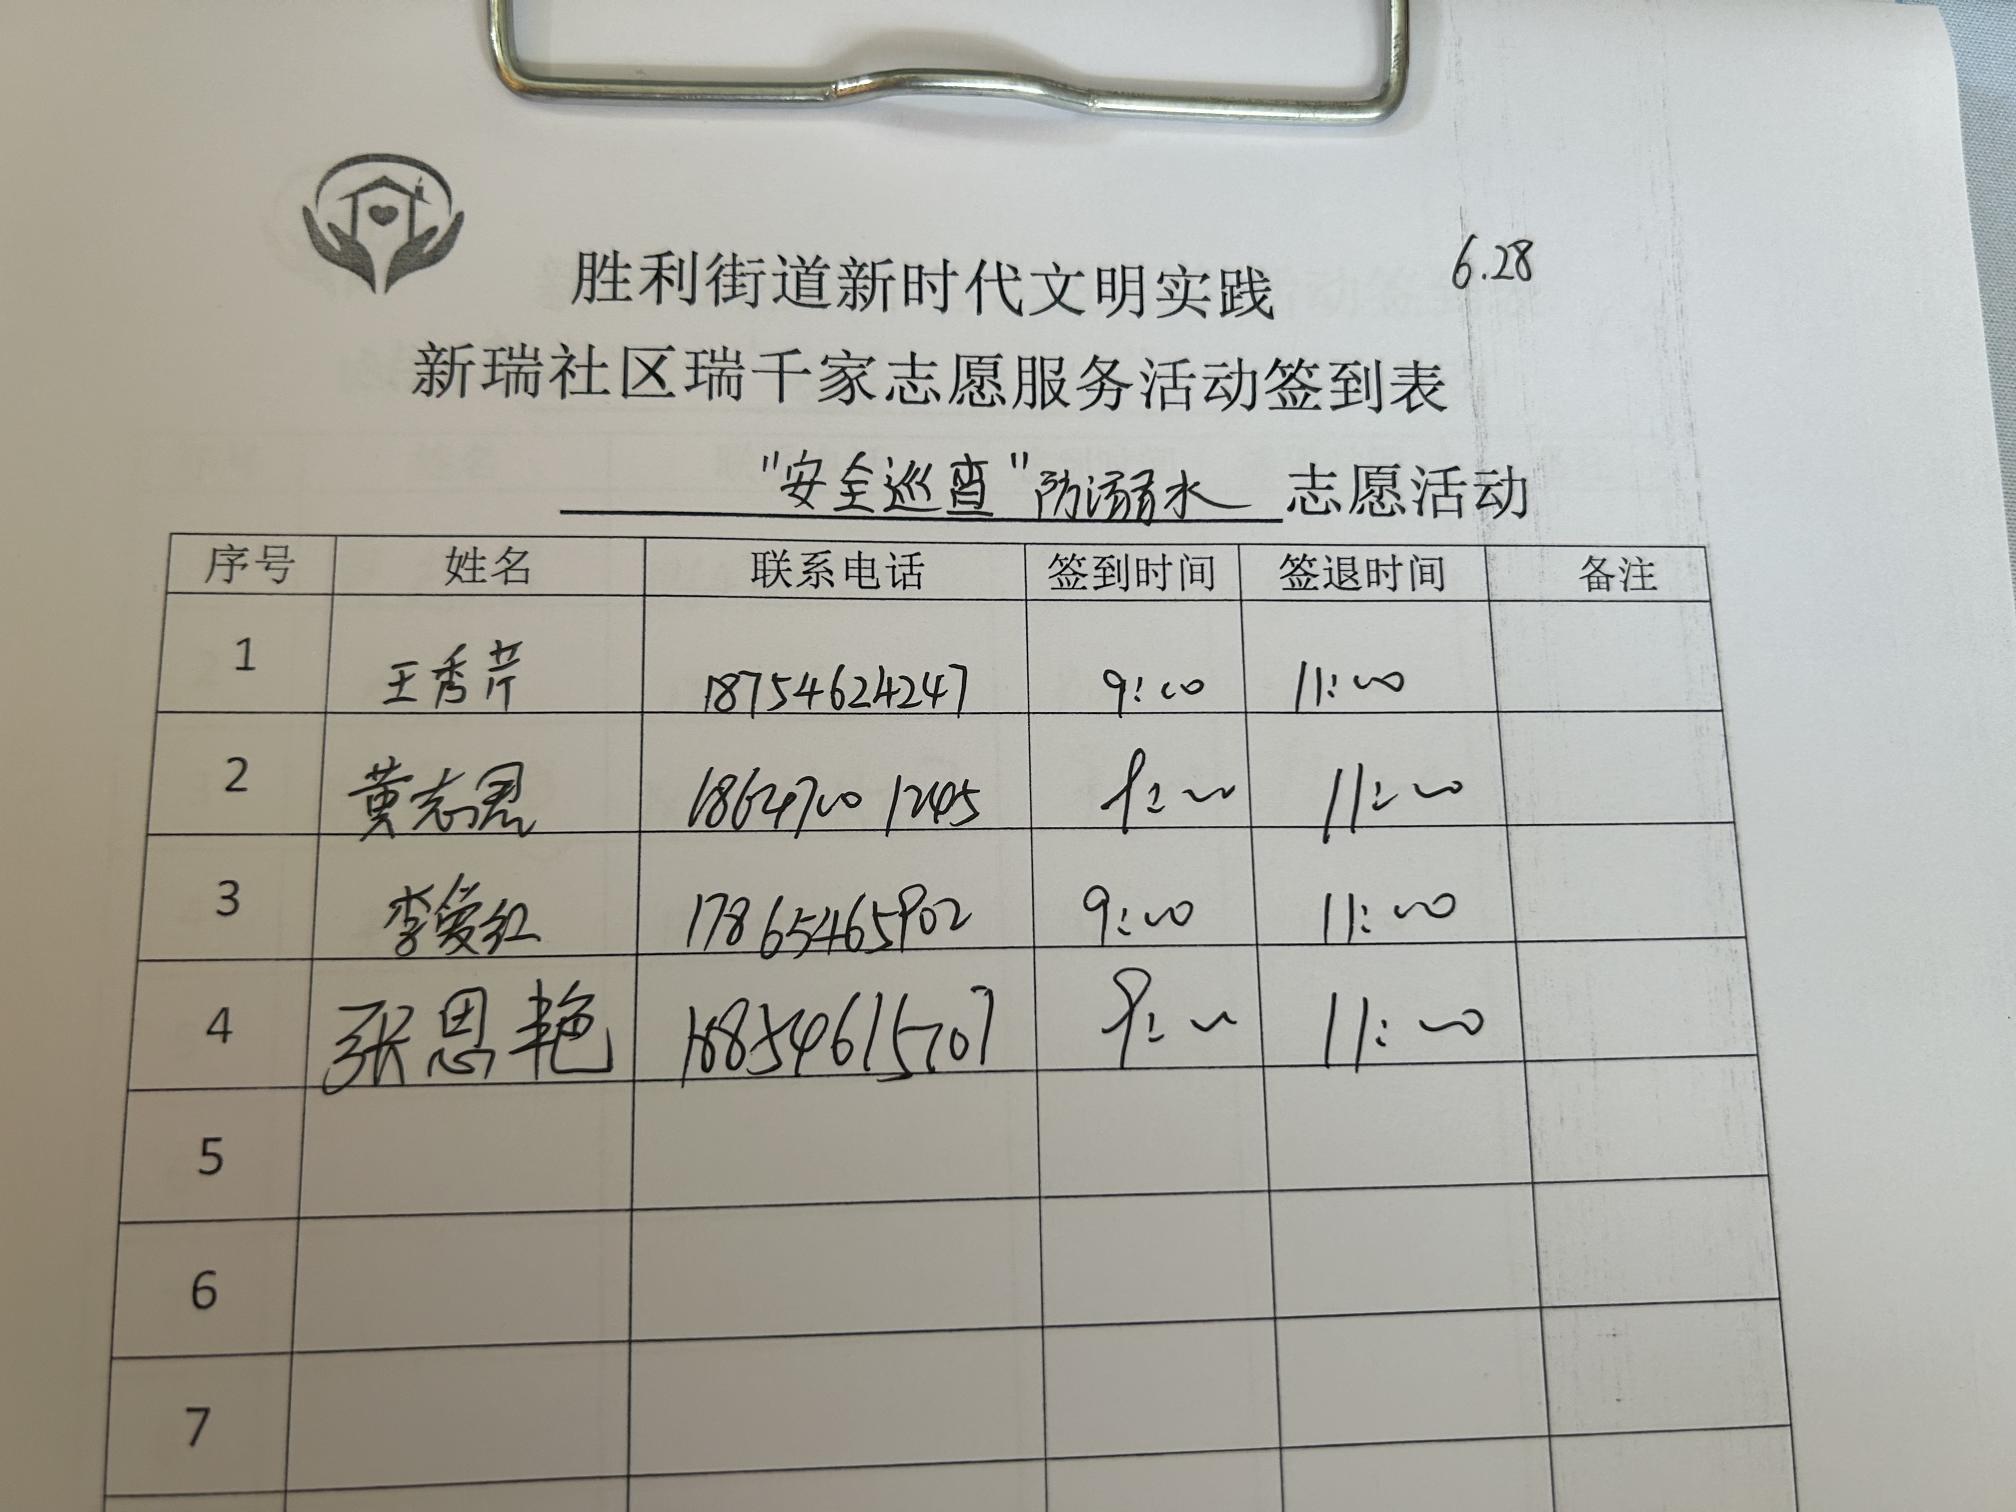 6.28
胜利街道新时代文明实践
新瑞社区瑞千家志愿服务活动签到表
"安全巡查"防溺水 志愿活动
序号 姓名 联系电话 签到时间 签退时间 备注
1 王秀芹 18754624247 9:00 11:00
2 黄志君 9:00 11:00
3 李爱红 17865465902 9:00 11:00
4 张恩艳 18854615707 9:00 11:00
5
6
7